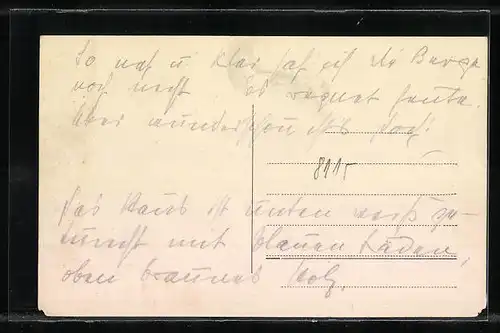 So nah u. klar sah ich die Berge
noch nicht. Es regnet heute.
Aber wunderschön ist's doch!
8115
Das Haus ist unten weiß ge-
tüncht mit blauen Läden,
oben braunes Holz.